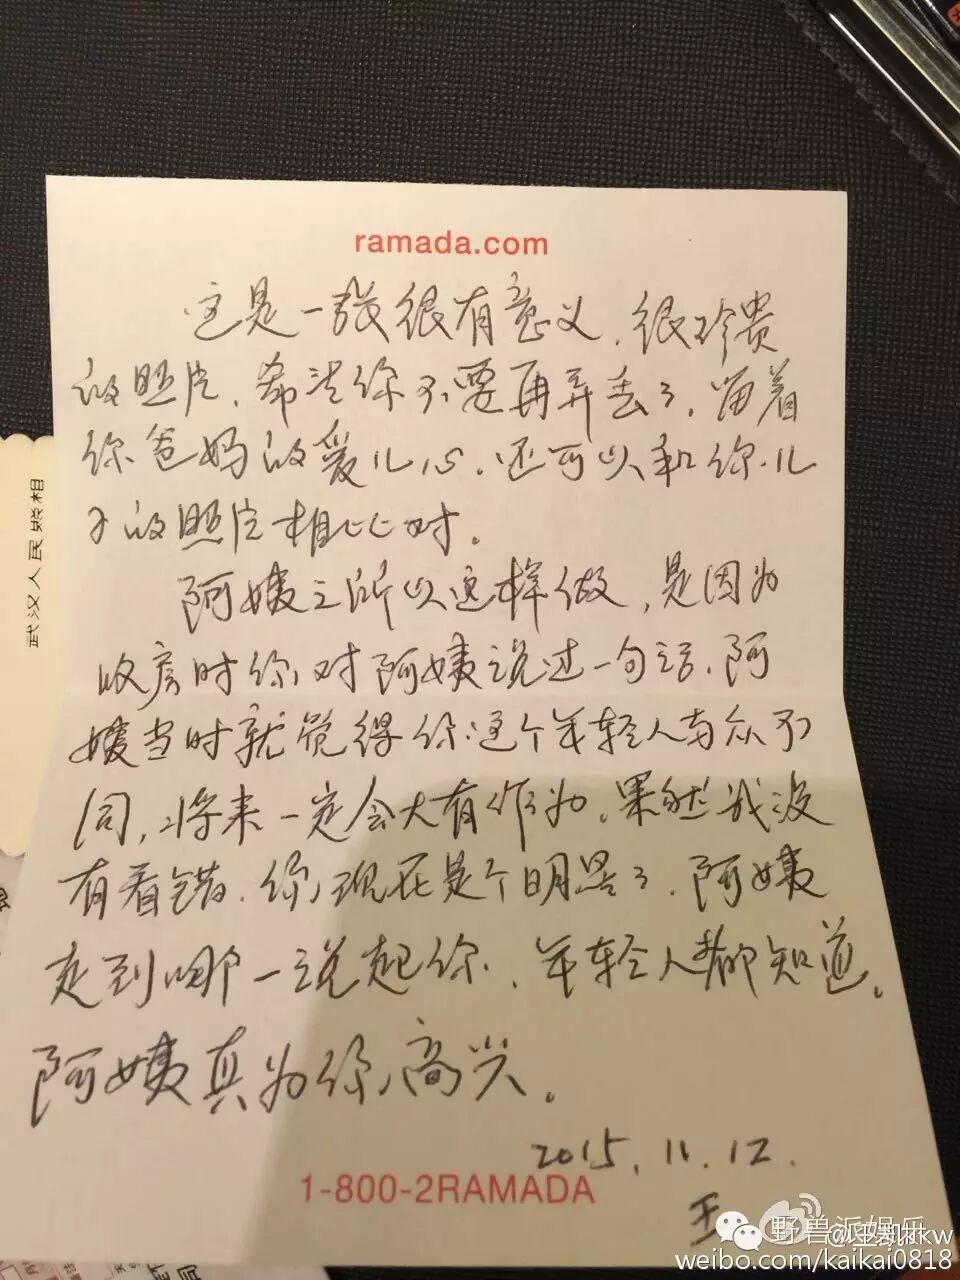 ramada.com
这是一张很有意义、很珍贵
的照片、希望你不要再弄丢了，留着
你爸妈的爱儿心、还可以和你儿
子的照片相比比对。
阿姨之所以这样做，是因为
收房时你对阿姨说过一句话、阿
姨当时就觉得你这个年轻人与众不
同，将来一定会大有作为。果然我没
有看错、你现在是个明星了、阿姨
走到哪一说起你、年轻人都知道。
阿姨真为你高兴。
2015.11.12.
1-800-2RAMADA
王
武汉人民照相
野兽派娱乐
@王凯kkw
weibo.com/kaikai0818